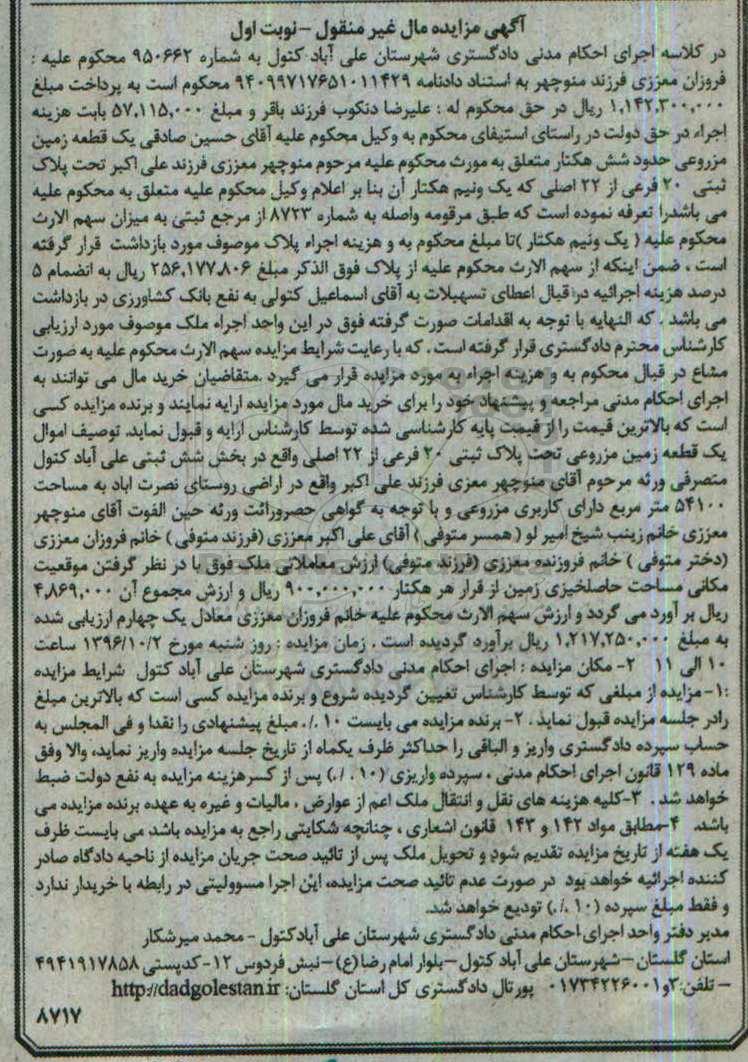 آگهی مزایده مال غیر منقول – نوبت اول
در کلاسه اجرای احکام مدنی دادگستری شهرستان علی آباد کتول به شماره ۹۵۰۶۶۲ محکوم علیه :
فروزان معززی فرزند منوچهر به استناد دادنامه ۹۴۰۹۹۷۱۷۶۵۱۰۱۱۴۲۹ محکوم است به پرداخت مبلغ
۱,۱۴۲,۳۰۰,۰۰۰ ریال در حق محکوم له : علیرضا دنکوب فرزند باقر و مبلغ ۵۷,۱۱۵,۰۰۰ بابت هزینه
اجراء در حق دولت در راستای استیفای محکوم به وکیل محکوم علیه آقای حسین صادقی یک قطعه زمین
مزروعی حدود شش هکتار متعلق به مورث محکوم علیه مرحوم منوچهر معززی فرزند علی اکبر تحت پلاک
ثبتی ۲۰ فرعی از ۲۲ اصلی که یک ونیم هکتار آن بنا بر اعلام وکیل محکوم علیه متعلق به محکوم علیه
می باشدرا تعرفه نموده است که طبق مرقومه واصله به شماره ۸۷۲۳ از مرجع ثبتی به میزان سهم الارث
محکوم علیه ( یک ونیم هکتار )تا مبلغ محکوم به و هزینه اجراء پلاک موصوف مورد بازداشت قرار گرفته
است ، ضمن اینکه از سهم الارث محکوم علیه از پلاک فوق الذکر مبلغ ۲۵۶,۱۷۷,۸۰۶ ریال به انضمام ۵
درصد هزینه اجرائیه در قبال اعطای تسهیلات به آقای اسماعیل کتولی به نفع بانک کشاورزی در بازداشت
می باشد . که النهایه با توجه به اقدامات صورت گرفته فوق در این واحد اجراء ملک موصوف مورد ارزیابی
کارشناس محترم دادگستری قرار گرفته است . که با رعایت شرایط مزایده سهم الارث محکوم علیه به صورت
مشاع در قبال محکوم به و هزینه اجراء به مورد مزایده قرار می گیرد .متقاضیان خرید مال می توانند به
اجرای احکام مدنی مراجعه و پیشنهاد خود را برای خرید مال مورد مزایده ارایه نمایند و برنده مزایده کسی
است که بالاترین قیمت را از قیمت پایه کارشناسی شده توسط کارشناس ارایه و قبول نماید. توصیف اموال
یک قطعه زمین مزروعی تحت پلاک ثبتی ۲۰ فرعی از ۲۲ اصلی واقع در بخش شش ثبتی علی آباد کتول
متصرفی ورثه مرحوم آقای منوچهر معزی فرزند علی اکبر واقع در اراضی روستای نصرت اباد به مساحت
۵۴۱۰۰ متر مربع دارای کاربری مزروعی و با توجه به گواهی حصروراثت ورثه حین الفوت آقای منوچهر
معززی خانم زینب شیخ امیر لو ( همسر متوفی ) آقای علی اکبر معززی (فرزند متوفی ) خانم فروزان معززی
(دختر متوفی ) خانم فروزنده معززی (فرزند متوفی) ارزش معاملاتی ملک فوق با در نظر گرفتن موقعیت
مکانی مساحت حاصلخیزی زمین از قرار هر هکتار ۹۰۰,۰۰۰,۰۰۰ ریال و ارزش مجموع آن ۴,۸۶۹,۰۰۰
ریال بر آورد می گردد و ارزش سهم الارث محکوم علیه خانم فروزان معززی معادل یک چهارم ارزیابی شده
به مبلغ ۱,۲۱۷,۲۵۰,۰۰۰ ریال برآورد گردیده است . زمان مزایده : روز شنبه مورخ ۱۳۹۶/۱۰/۲ ساعت
۱۰ الی ۱۱ ۲- مکان مزایده : اجرای احکام مدنی دادگستری شهرستان علی آباد کتول شرایط مزایده
:۱- مزایده از مبلغی که توسط کارشناس تعیین گردیده شروع و برنده مزایده کسی است که بالاترین مبلغ
رادر جلسه مزایده قبول نماید . ۲- برنده مزایده می بایست ۱۰ ./. مبلغ پیشنهادی را نقدا و فی المجلس به
حساب سپرده دادگستری واریز و الباقی را حداکثر ظرف یکماه از تاریخ جلسه مزایده واریز نماید، والا وفق
ماده ۱۲۹ قانون اجرای احکام مدنی ، سپرده واریزی (۱۰ ./.) پس از کسرهزینه مزایده به نفع دولت ضبط
خواهد شد . ۳-کلیه هزینه های نقل و انتقال ملک اعم از عوارض ، مالیات و غیره به عهده برنده مزایده می
باشد. ۴-مطابق مواد ۱۴۲ و ۱۴۳ قانون اشعاری ، چنانچه شکایتی راجع به مزایده باشد می بایست ظرف
یک هفته از تاریخ مزایده تقدیم شود و تحویل ملک پس از تائید صحت جریان مزایده از ناحیه دادگاه صادر
کننده اجرائیه خواهد بود در صورت عدم تائید صحت مزایده، این اجرا مسوولیتی در رابطه با خریدار ندارد
و فقط مبلغ سپرده (۱۰ ./.) تودیع خواهد شد.
مدیر دفتر واحد اجرای احکام مدنی دادگستری شهرستان علی آبادکتول - محمد میرشکار
استان گلستان –شهرستان علی آباد کتول –بلوار امام رضا(ع) –نبش فردوس ۱۲- کدپستی ۴۹۴۱۹۱۷۸۵۸
– تلفن:۳و۰۱۷۳۴۲۲۶۰۰۱ پورتال دادگستری کل استان گلستان: http://dadgolestan.ir
۸۷۱۷